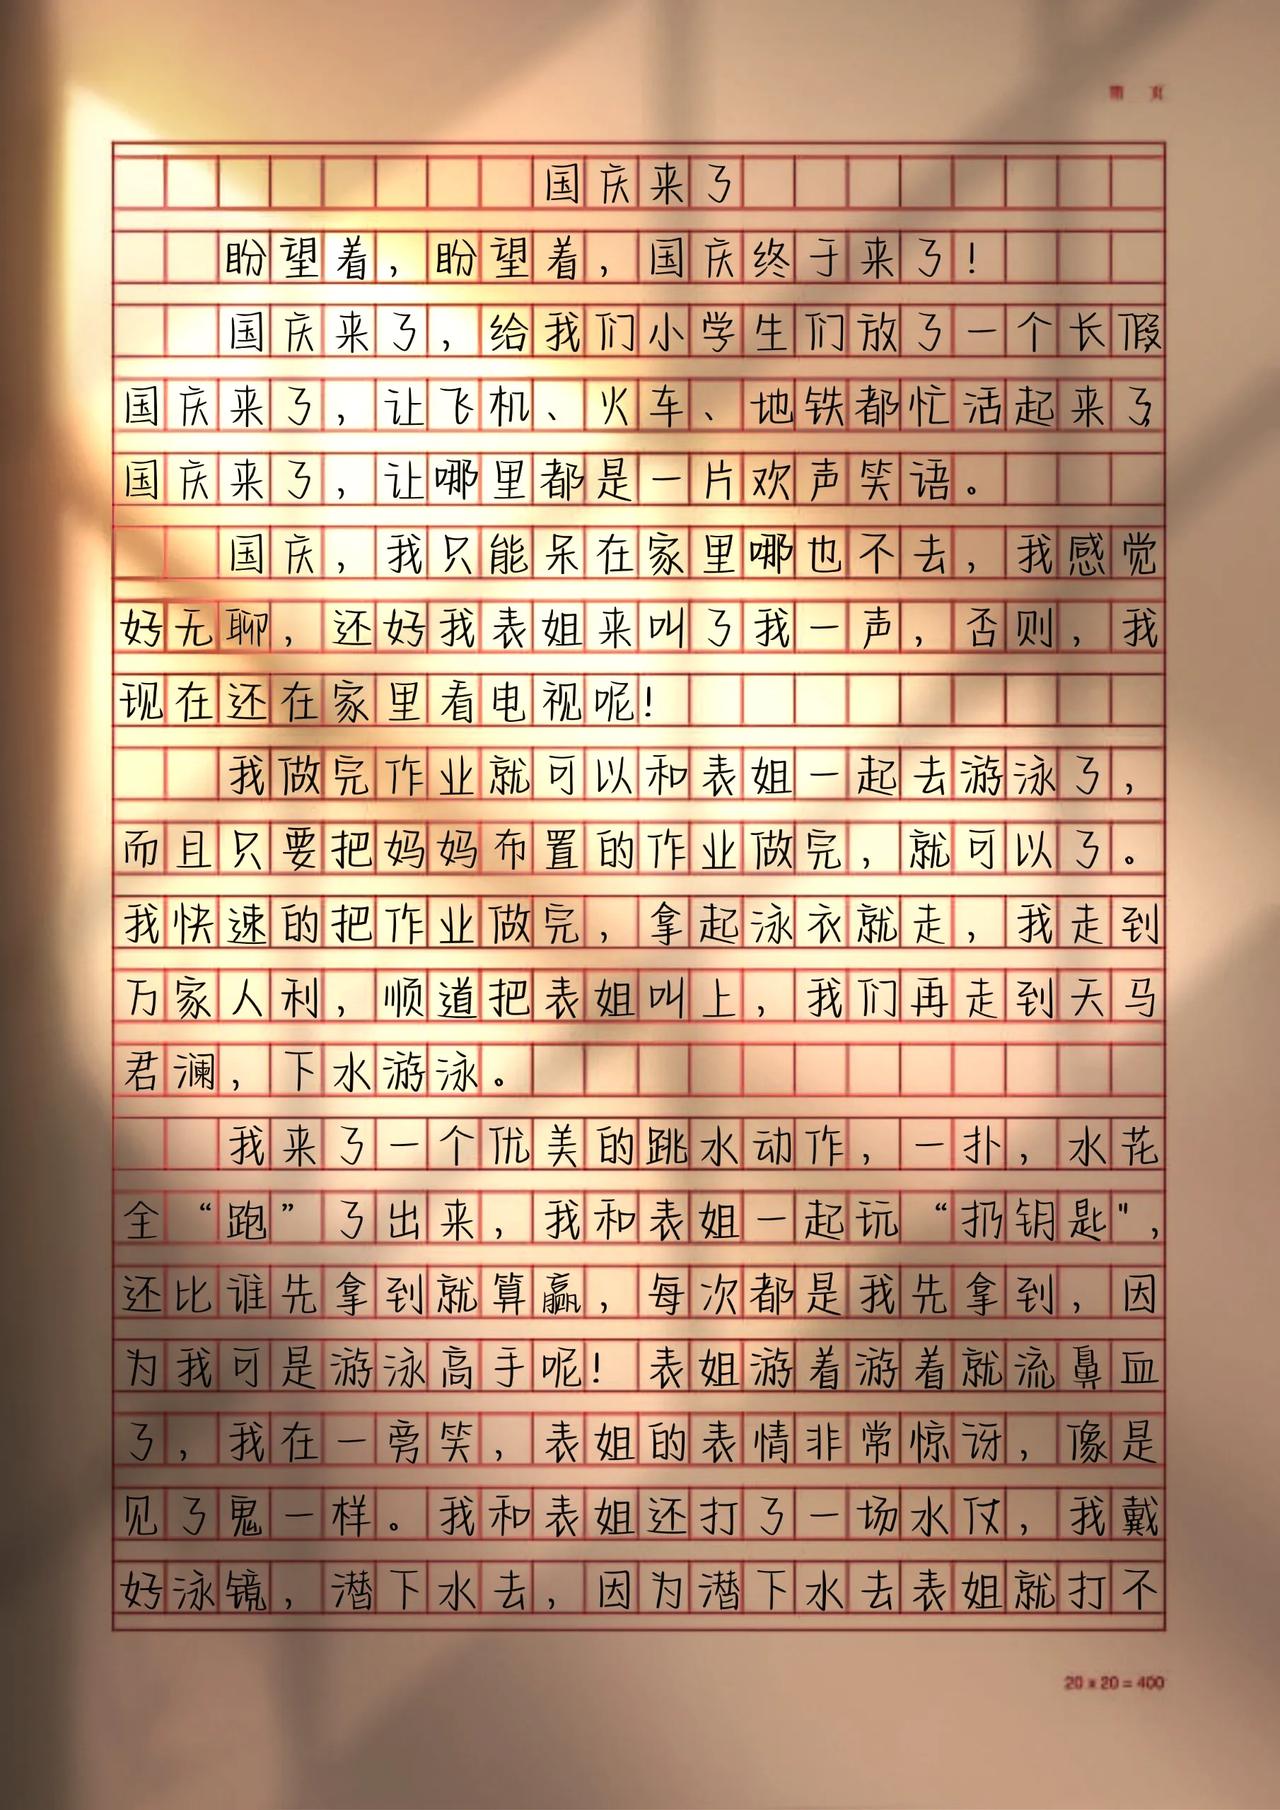 第 页
国庆来了
盼望着，盼望着，国庆终于来了！
国庆来了，给我们小学生们放了一个长假
国庆来了，让飞机、火车、地铁都忙活起来了
国庆来了，让哪里都是一片欢声笑语。
国庆，我只能呆在家里哪也不去，我感觉
好无聊，还好我表姐来叫了我一声，否则，我
现在还在家里看电视呢！
我做完作业就可以和表姐一起去游泳了，
而且只要把妈妈布置的作业做完，就可以了。
我快速的把作业做完，拿起泳衣就走，我走到
万家人利，顺道把表姐叫上，我们再走到天马
君澜，下水游泳。
我来了一个优美的跳水动作，一扑，水花
全“跑”了出来，我和表姐一起玩“扔钥匙"，
还比谁先拿到就算赢，每次都是我先拿到，因
为我可是游泳高手呢！表姐游着游着就流鼻血
了，我在一旁笑，表姐的表情非常惊讶，像是
见了鬼一样。我和表姐还打了一场水仗，我戴
好泳镜，潜下水去，因为潜下水去表姐就打不
20 x 20 = 400